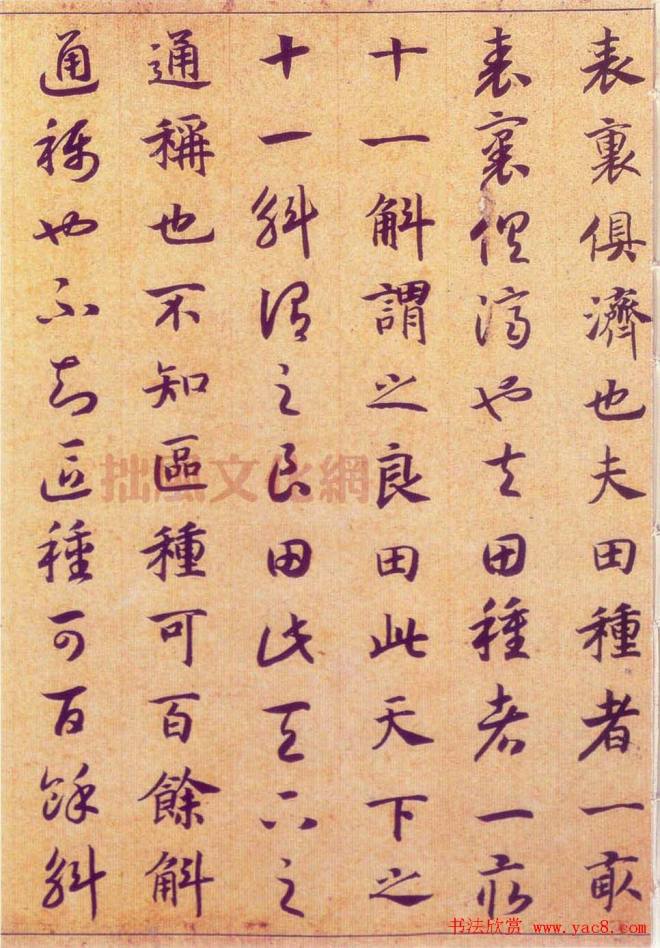 表裏俱濟也夫田種者一畝
表裏俱濟也夫田種者一畝
十一斛謂之良田此天下之
十一斛謂之良田此天下之
通稱也不知區種可百餘斛
通稱也不知區種可百餘斛
拙風文化網
书法欣赏 www.yac8.com